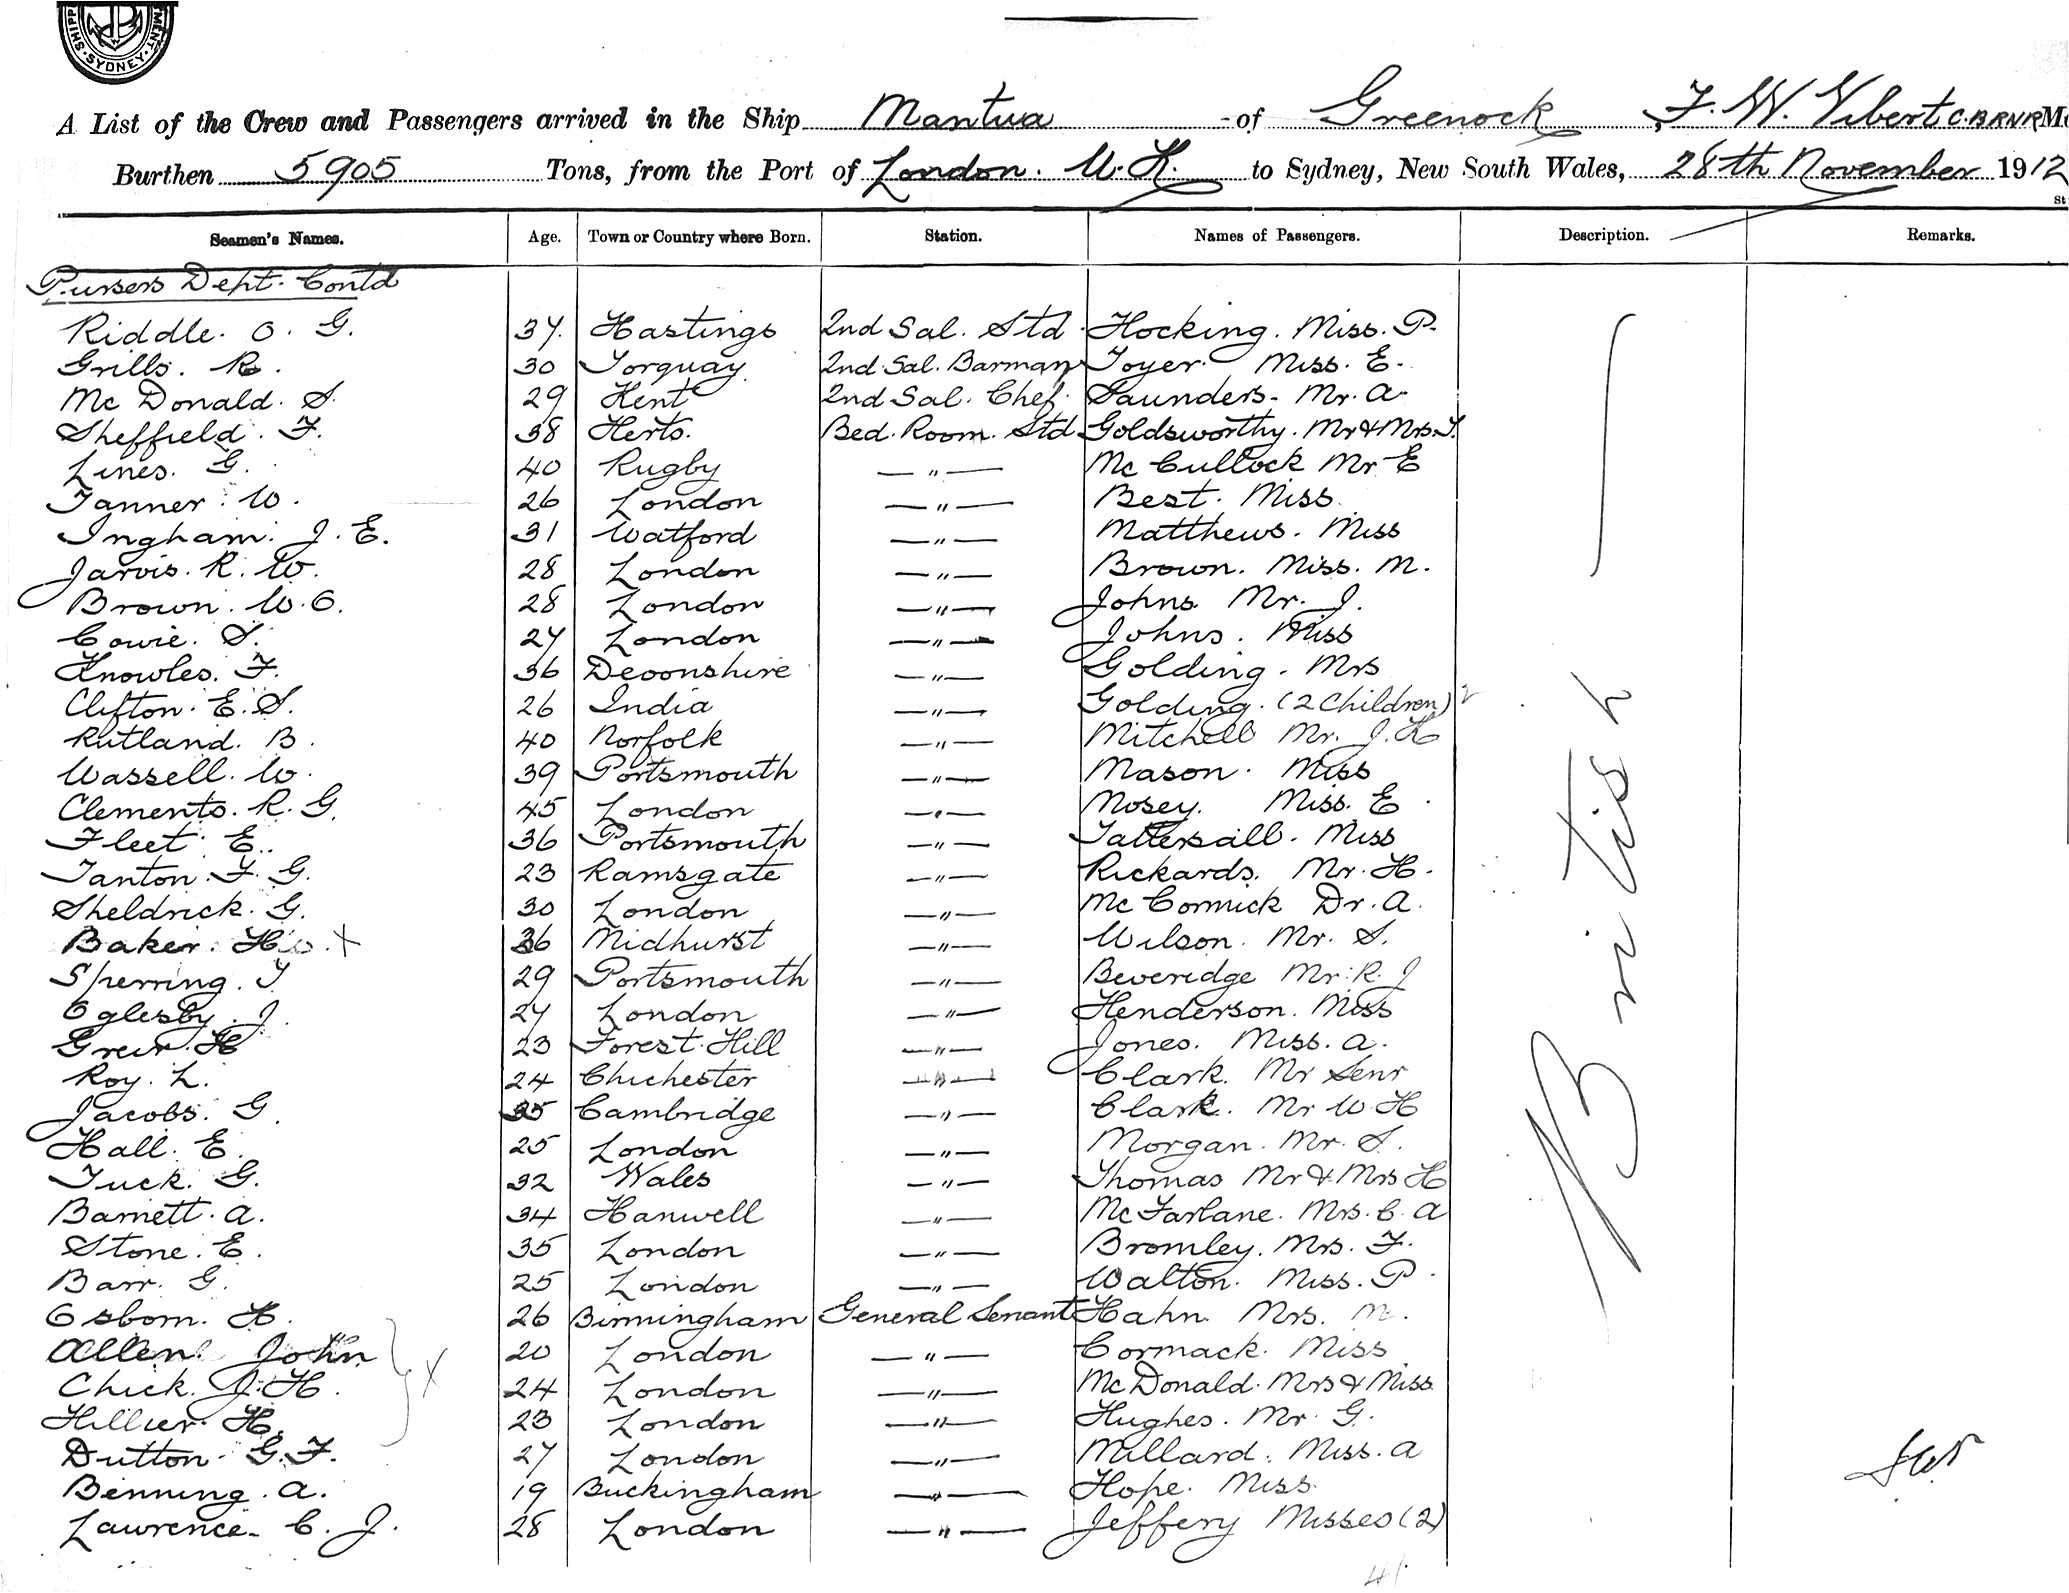 SHIPP MENT. SYDNEY.
A List of the Crew and Passengers arrived in the Ship Mantua of Greenock, F. W. Vibert C.B.RNR
Burthen 5905 Tons, from the Port of London. U.K. to Sydney, New South Wales, 28th November 1912
St
Seamen's Names. Age. Town or Country where Born. Station. Names of Passengers. Description. Remarks.
Pursers Dept. Contd
Riddle. O. G. 37. Hastings 2nd Sal. Std. Hocking. Miss. P.
Grills. R. 30 Torquay 2nd Sal. Barman Toyer. Miss. E.
Mc Donald. S. 29 Kent 2nd Sal. Chef. Saunders. Mr. A.
Sheffield. F. 38 Herts. Bed. Room. Std Goldsworthy. Mr & Mrs. T.
Lines. G. 40 Rugby —"— Mc Cullock Mr E
Tanner. W. 26 London —"— Best. Miss
Ingham. J. E. 31 Watford —"— Matthews. Miss
Jarvis. R. W. 28 London —"— Brown. Miss. M.
Brown. W. C. 28 London —"— Johns Mr. J.
Cowie. S. 27 London —"— Johns. Miss
Knowles. F. 36 Devonshire —"— Golding. Mrs
Clifton. E. S. 26 India —"— Golding. (2 Children) 2
Rutland. B. 40 Norfolk —"— Mitchell Mr. J. H
Wassell. W. 39 Portsmouth —"— Mason. Miss
Clements. R. G. 45 London —"— Mosey. Miss. E.
Fleet. E. 36 Portsmouth —"— Tattersall. Miss
Tanton. F. G. 23 Ramsgate —"— Rickards. Mr. H.
Sheldrick. G. 30 London —"— Mc Cormick Dr. A.
Baker. H W. X 36 Midhurst —"— Wilson. Mr. S.
Sperring. T. 29 Portsmouth —"— Beveridge Mr. R. J
Oglesby. J. 27 London —"— Henderson. Miss
H 23 Forest Hill —"— Jones. Miss. A.
Roy. L. 24 Chichester —"— Clark. Mr Senr
Jacobs. G. 35 Cambridge —"— Clark. Mr W H
Hall. E. 25 London —"— Morgan. Mr. S.
Tuck. G. 32 Wales —"— Thomas Mr & Mrs H
Barnett. A. 34 Hanwell —"— Mc Farlane. Mrs. C. A
Stone. E. 35 London —"— Bromley. Mrs. F.
Barr. G. 25 London —"— Walton. Miss. P.
Osborn. H. 26 Birmingham General Servant Hahn Mrs. M.
Allen John 20 London —"— Cormack. Miss
Chick. J. H. X 24 London —"— Mc Donald. Mrs & Miss
Hillier H. 23 London —"— Hughes. Mr. G.
Dutton. G. F. 27 London —"— Millard. Miss. A
Benning. A. 19 Buckingham —"— Hope. Miss.
Lawrence. C. J. 28 London —"— Jeffery Misses (2)
British
41